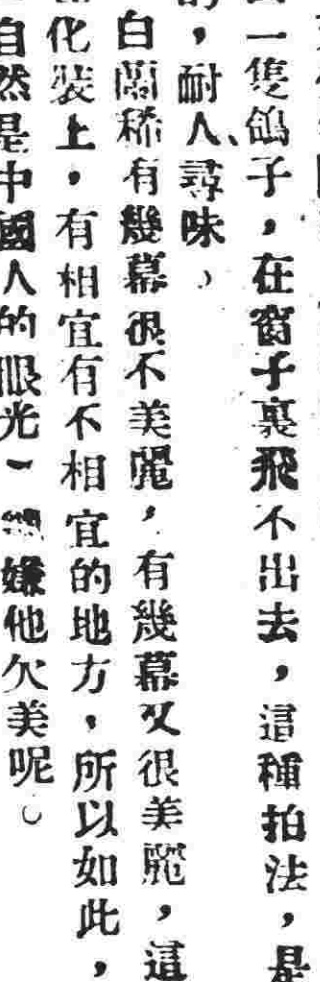 一隻鴿子，在窗子裏飛不出去，這種拍法，是
，耐人、尋味，
白蘭稀有幾幕很不美麗，有幾幕又很美麗，這
化裝上，有相宜有不相宜的地方，所以如此，
自然是中國人的眼光，嫌他欠美呢。